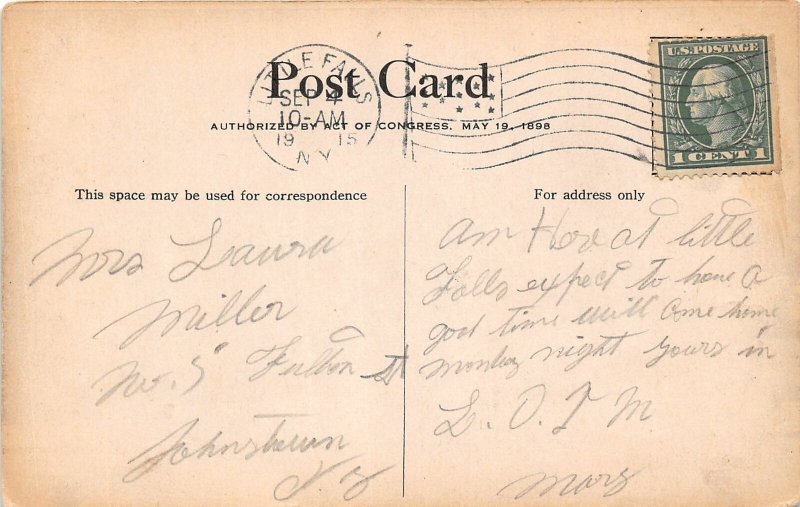 Post Card
AUTHORIZED BY ACT OF CONGRESS, MAY 19, 1898
LITTLE FALLS
SEP 4
10-AM
1915
N.Y.
U.S. POSTAGE
1 CENT 1
This space may be used for correspondence
Mrs Laura
Miller
No. 5 Fulton St
Johnstown
N.Y
For address only
am Here at little
Falls expect to have a
good time will come home
monday night yours in
L. O. T M
Mary